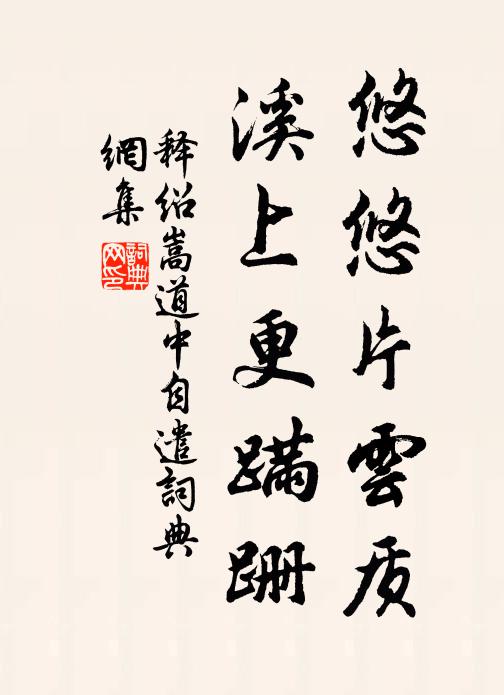 悠悠片雲质
溪上更蹒跚
释绍嵩道中自遣詞典
網集
詞典网印